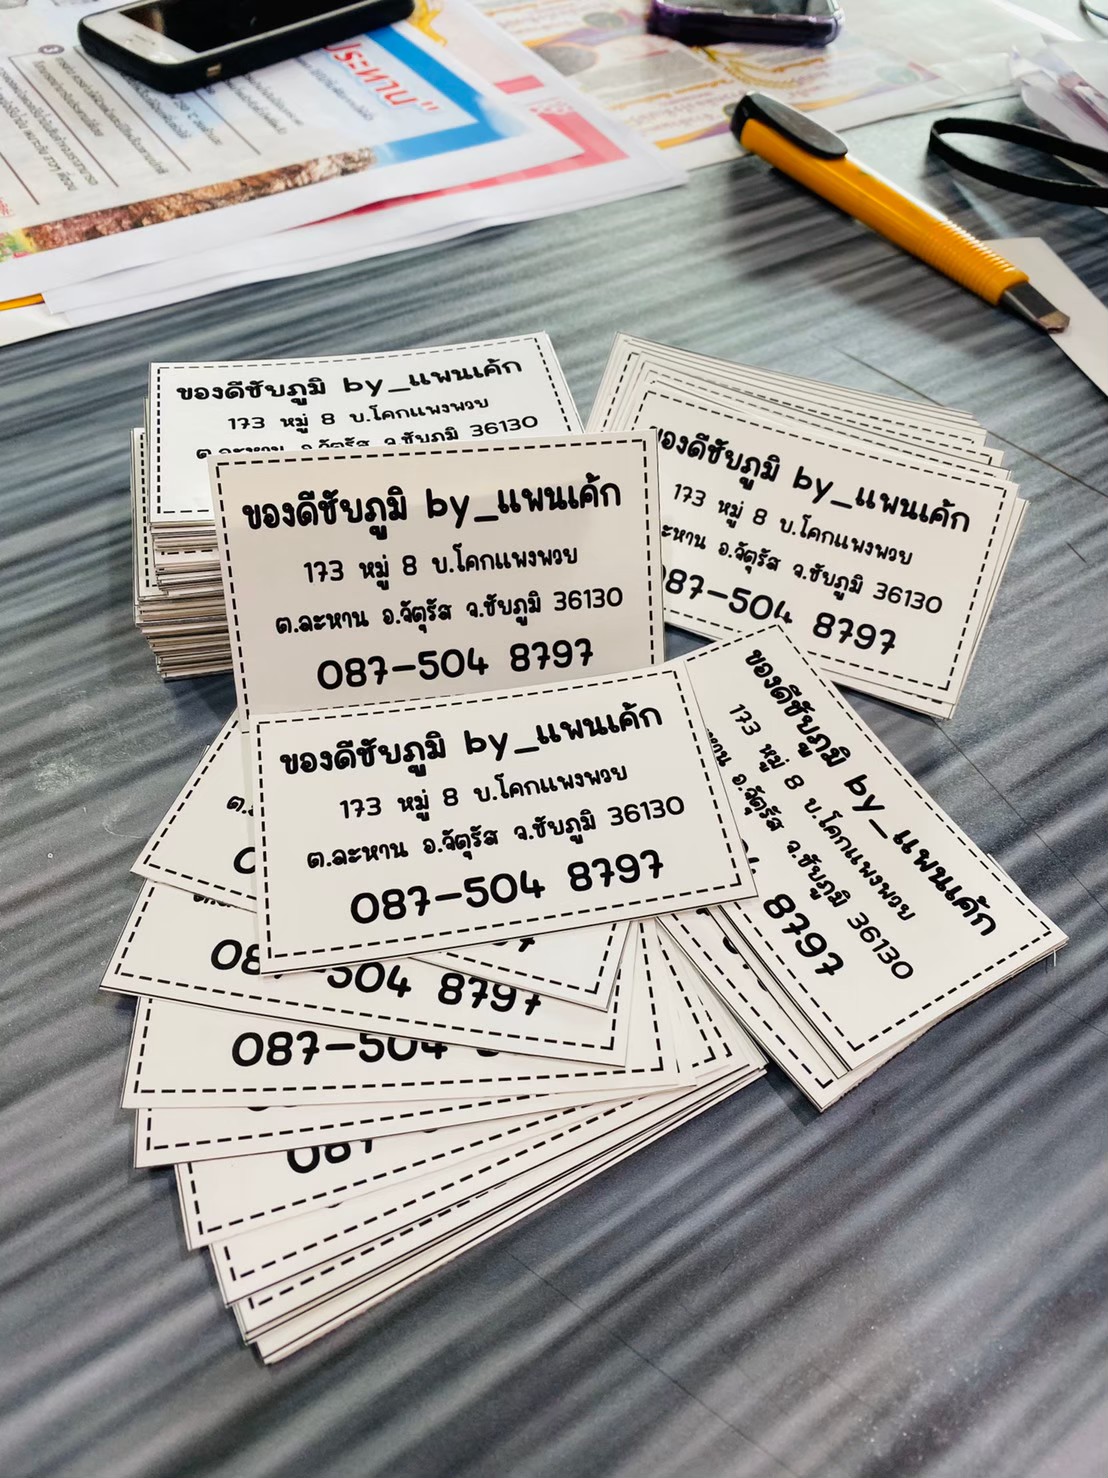 ประทาน"
ของดีชัยภูมิ by_แพนเค้ก
173 หมู่ 8 บ.โคกแพงพวย
ต.ละหาน อ.จัตุรัส จ.ชัยภูมิ 36130
ของดีชัยภูมิ by_แพนเค้ก
173 หมู่ 8 บ.โคกแพงพวย
ต.ละหาน อ.จัตุรัส จ.ชัยภูมิ 36130
087-504 8797
ของดีชัยภูมิ by_แพนเค้ก
173 หมู่ 8 บ.โคกแพงพวย
อ.จัตุรัส จ.ชัยภูมิ 36130
087-504 8797
ของดีชัยภูมิ by_แพนเค้ก
173 หมู่ 8 บ.โคกแพงพวย
ต.ละหาน อ.จัตุรัส จ.ชัยภูมิ 36130
087-504 8797
ของดีชัยภูมิ by_แพนเค้ก
173 หมู่ 8 บ.โคกแพงพวย
อ.จัตุรัส จ.ชัยภูมิ 36130
8797
504 8797
087-504
087